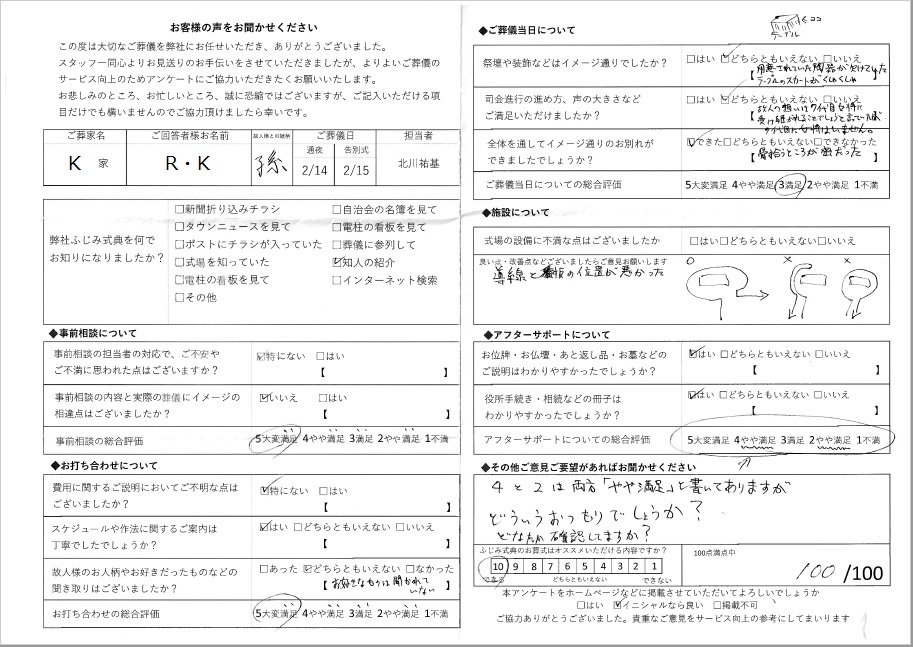 お客様の声をお聞かせください
この度は大切なご葬儀を弊社にお任せいただき、ありがとうございました。
スタッフ一同心よりお見送りのお手伝いをさせていただきましたが、よりよいご葬儀の
サービス向上のためアンケートにご協力いただきたくお願いいたします。
お悲しみのところ、お忙しいところ、誠に恐縮ではございますが、ご記入いただける項
目だけでも構いませんのでご協力頂けましたら幸いです。
ご葬家名 ご回答者様お名前 故人様との続柄 ご葬儀日 担当者
通夜 告別式
K 家 R・K 孫 2/14 2/15 北川祐基
弊社ふじみ式典を何で
お知りになりましたか？
□新聞折り込みチラシ □自治会の名簿を見て
□タウンニュースを見て □電柱の看板を見て
□ポストにチラシが入っていた □葬儀に参列して
□式場を知っていた ☑知人の紹介
□電柱の看板を見て □インターネット検索
□その他
◆事前相談について
事前相談の担当者の対応で、ご不安や
ご不満に思われた点はございますか？
☑特にない □はい
【 】
事前相談の内容と実際の葬儀にイメージの
相違点はございましたか？
☑いいえ □はい
【 】
事前相談の総合評価 5大変満足 4やや満足 3満足 2やや満足 1不満
◆お打ち合わせについて
費用に関するご説明においてご不明な点は
ございましたか？
☑特にない □はい
【 】
スケジュールや作法に関するご案内は
丁寧でしたでしょうか？
☑はい □どちらともいえない □いいえ
【 】
故人様のお人柄やお好きだったものなどの
聞き取りはございましたか？
□あった ☑どちらともいえない □なかった
【お好きなものは聞かれて
いない】
お打ち合わせの総合評価 5大変満足 4やや満足 3満足 2やや満足 1不満
◆ご葬儀当日について
ココ
テーブル
祭壇や装飾などはイメージ通りでしたか？
□はい ☑どちらともいえない □いいえ
【用意されていた陶器が欠けてした
テーブルのスカートがくしゃくしゃ】
司会進行の進め方、声の大きさなど
ご満足いただけましたか？
□はい ☑どちらともいえない □いいえ
【故人の想いは
受け継がれることでしょうと言って
いません。】
全体を通してイメージ通りのお別れが
できましたでしょうか？
☑できた □どちらともいえない □できなかった
【骨拾うところが だった】
ご葬儀当日についての総合評価 5大変満足 4やや満足 3満足 2やや満足 1不満
◆施設について
式場の設備に不満な点はございましたか □はい□どちらともいえない□いいえ
良い点・改善点などございましたらご意見お願いします
導線と看板の位置が悪かった
○ × ×
◆アフターサポートについて
お位牌・お仏壇・あと返し品・お墓などの
ご説明はわかりやすかったでしょうか？
☑はい □どちらともいえない □いいえ
【 】
役所手続き・相続などの冊子は
わかりやすかったでしょうか？
☑はい □どちらともいえない □いいえ
【 】
アフターサポートについての総合評価 5大変満足 4やや満足 3満足 2やや満足 1不満
◆その他ご意見ご要望があればお聞かせください
4と2は両方「やや満足」と書いてありますが
どういうおつもりでしょうか？
どなたか確認してますか？
ふじみ式典のお葬式はオススメいただける内容ですか？
10 9 8 7 6 5 4 3 2 1
できる どちらともいえない できない
100点満点中
100 /100
本アンケートをホームページなどに掲載させていただいてよろしいでしょうか
□はい ☑イニシャルなら良い □掲載不可
ご協力ありがとうございました。貴重なご意見をサービス向上の参考にしてまいります